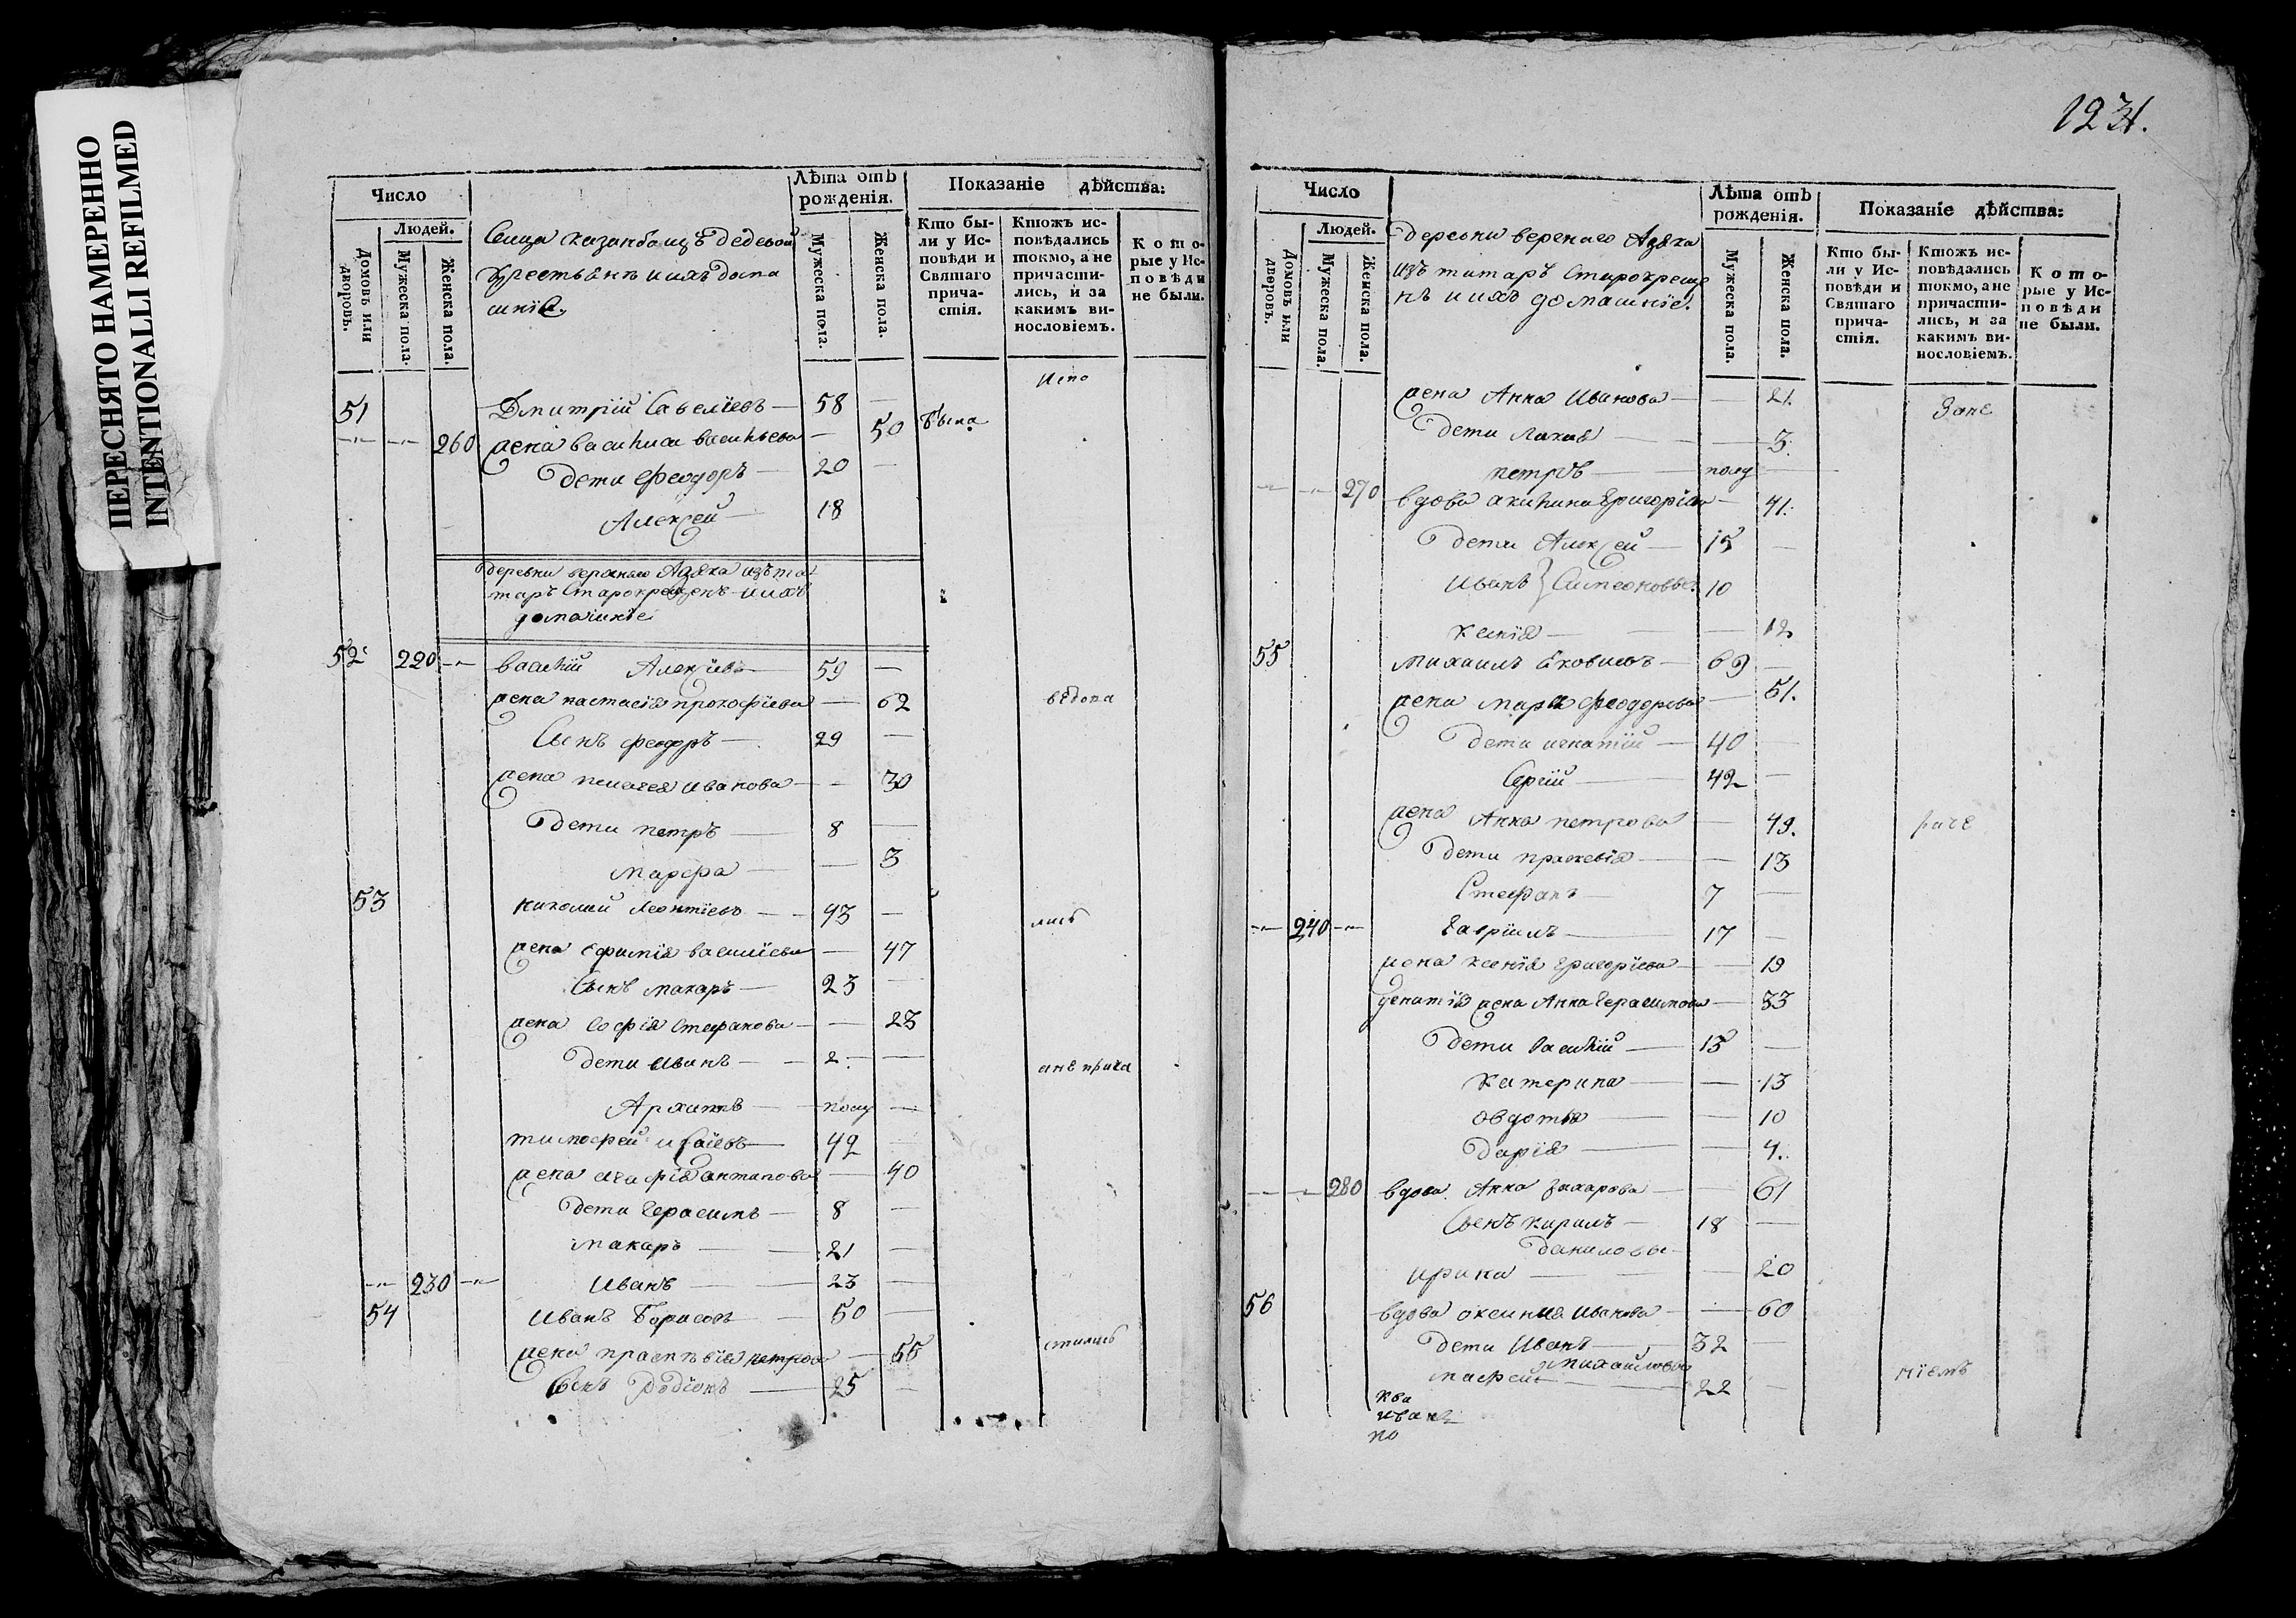 ПЕРЕСНЯТО НАМЕРЕННО
INTENTIONALLI REFILMED
Число
Людей.
Домовъ или дворовъ.
Мужеска пола.
Женска пола.
Села
крестьянъ и ихъ дома
шнїе.
Лѣта отъ рожденія.
Мужеска пола.
Женска пола.
Показаніе дѣйства:
Кто бы-
ли у Ис-
повѣди и
Святаго
прича-
стія.
Ктожъ ис-
повѣдались
токмо, а не
причасти-
лись, и за
какимъ ви-
нословіемъ.
Кото-
рые у Ис-
повѣди
не были.
Испо
51 Дмитрїй Савелїевъ — 58 —
260 жена василиса васильева — 50 была
Дети феодоръ — 20 —
Алексей — 18
деревни верхняго Адяка изъ та
таръ Старокрещенъ и ихъ
домашнїе
52 220 василїй Алексїевъ — 59 —
жена настасїя прокофїева — 62 вѣдова
Сынъ феодоръ — 29 —
жена пелагея иванова — 30
Дети петръ — 8 —
марфа — 3
53 николай Леонтїевъ — 43 — лись
жена ефимїя василїева — 47
Сынъ макаръ — 23 —
жена софїя Стефанова — 23
Дети иванъ — 2 — а не прича
Архипъ — полу —
тимофей исаїевъ — 42 —
жена агафїя антипова — 40
Дети Герасимъ — 8 —
макаръ — 21 —
230 иванъ — 23 —
54 иванъ Борисовъ — 50 —
жена петрова — 55 стились
Сынъ Родїонъ — 25 —
1231.
Число
Людей.
Домовъ или дворовъ.
Мужеска пола.
Женска пола.
Деревни верхняго Адяка
изъ татаръ Старокреще
нъ и ихъ домашнїе.
Лѣта отъ рожденія.
Мужеска пола.
Женска пола.
Показаніе дѣйства:
Кто бы-
ли у Ис-
повѣди и
Святаго
прича-
стія.
Ктожъ ис-
повѣдались
токмо, а не
причасти-
лись, и за
какимъ ви-
нословіемъ.
Кото-
рые у Ис-
повѣди
не были.
жена Анна Иванова — 21. Зане
Дети — 3.
петръ — полу
270 вдова акилина Григорїева — 41.
Дети Алексей — 15 —
Иванъ } Симеоновы 10
ксенїя — 12
55 михаилъ Яковлевъ — 69 —
жена марїя феодорова — 51.
Дети игнатїй — 40 —
Сергїй — 42 —
жена Анна петрова — 49.
Дети — 13
Стефанъ — 7 —
240 Гаврїилъ — 17 —
жена ксенїя Григорїева — 19
игнатїя жена Анна Герасимова — 33
Дети василїй — 15 —
катерина — 13
овдотья — 10
Дарїя — 4.
280 вдова Анна Захарова — 61
Сынъ кирилъ — 18 —
Даниловы
ирина — 20
56 вдова оксиния иванова — 60
Дети Иванъ — 32 —
михайловы
мафей — 22 — нїемъ
ква
иванъ
но